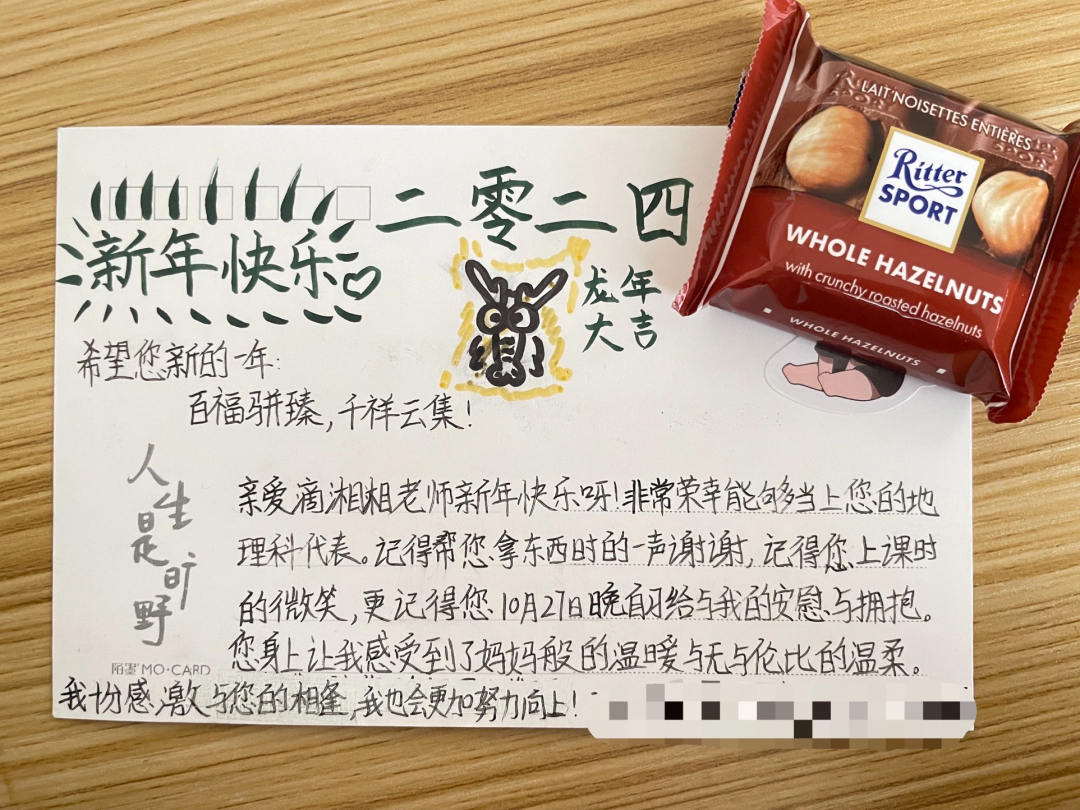 新年快乐
二零二四
龙年
大吉
希望您新的一年:
百福骈臻,千祥云集!
人生
是旷
野
亲爱滴湘湘老师新年快乐呀!非常荣幸能够当上您的地
理科代表。记得帮您拿东西时的一声谢谢,记得您上课时
的微笑,更记得您10月27日晚自习给与我的安慰与拥抱。
您身上让我感受到了妈妈般的温暖与无与伦比的温柔。
陌墨 MO·CARD
我十份感激与您的相逢,我也会更加努力向上!
LAIT NOISETTES ENTIÈRES
Ritter
SPORT
WHOLE HAZELNUTS
with crunchy roasted hazelnuts
WHOLE HAZELNUTS